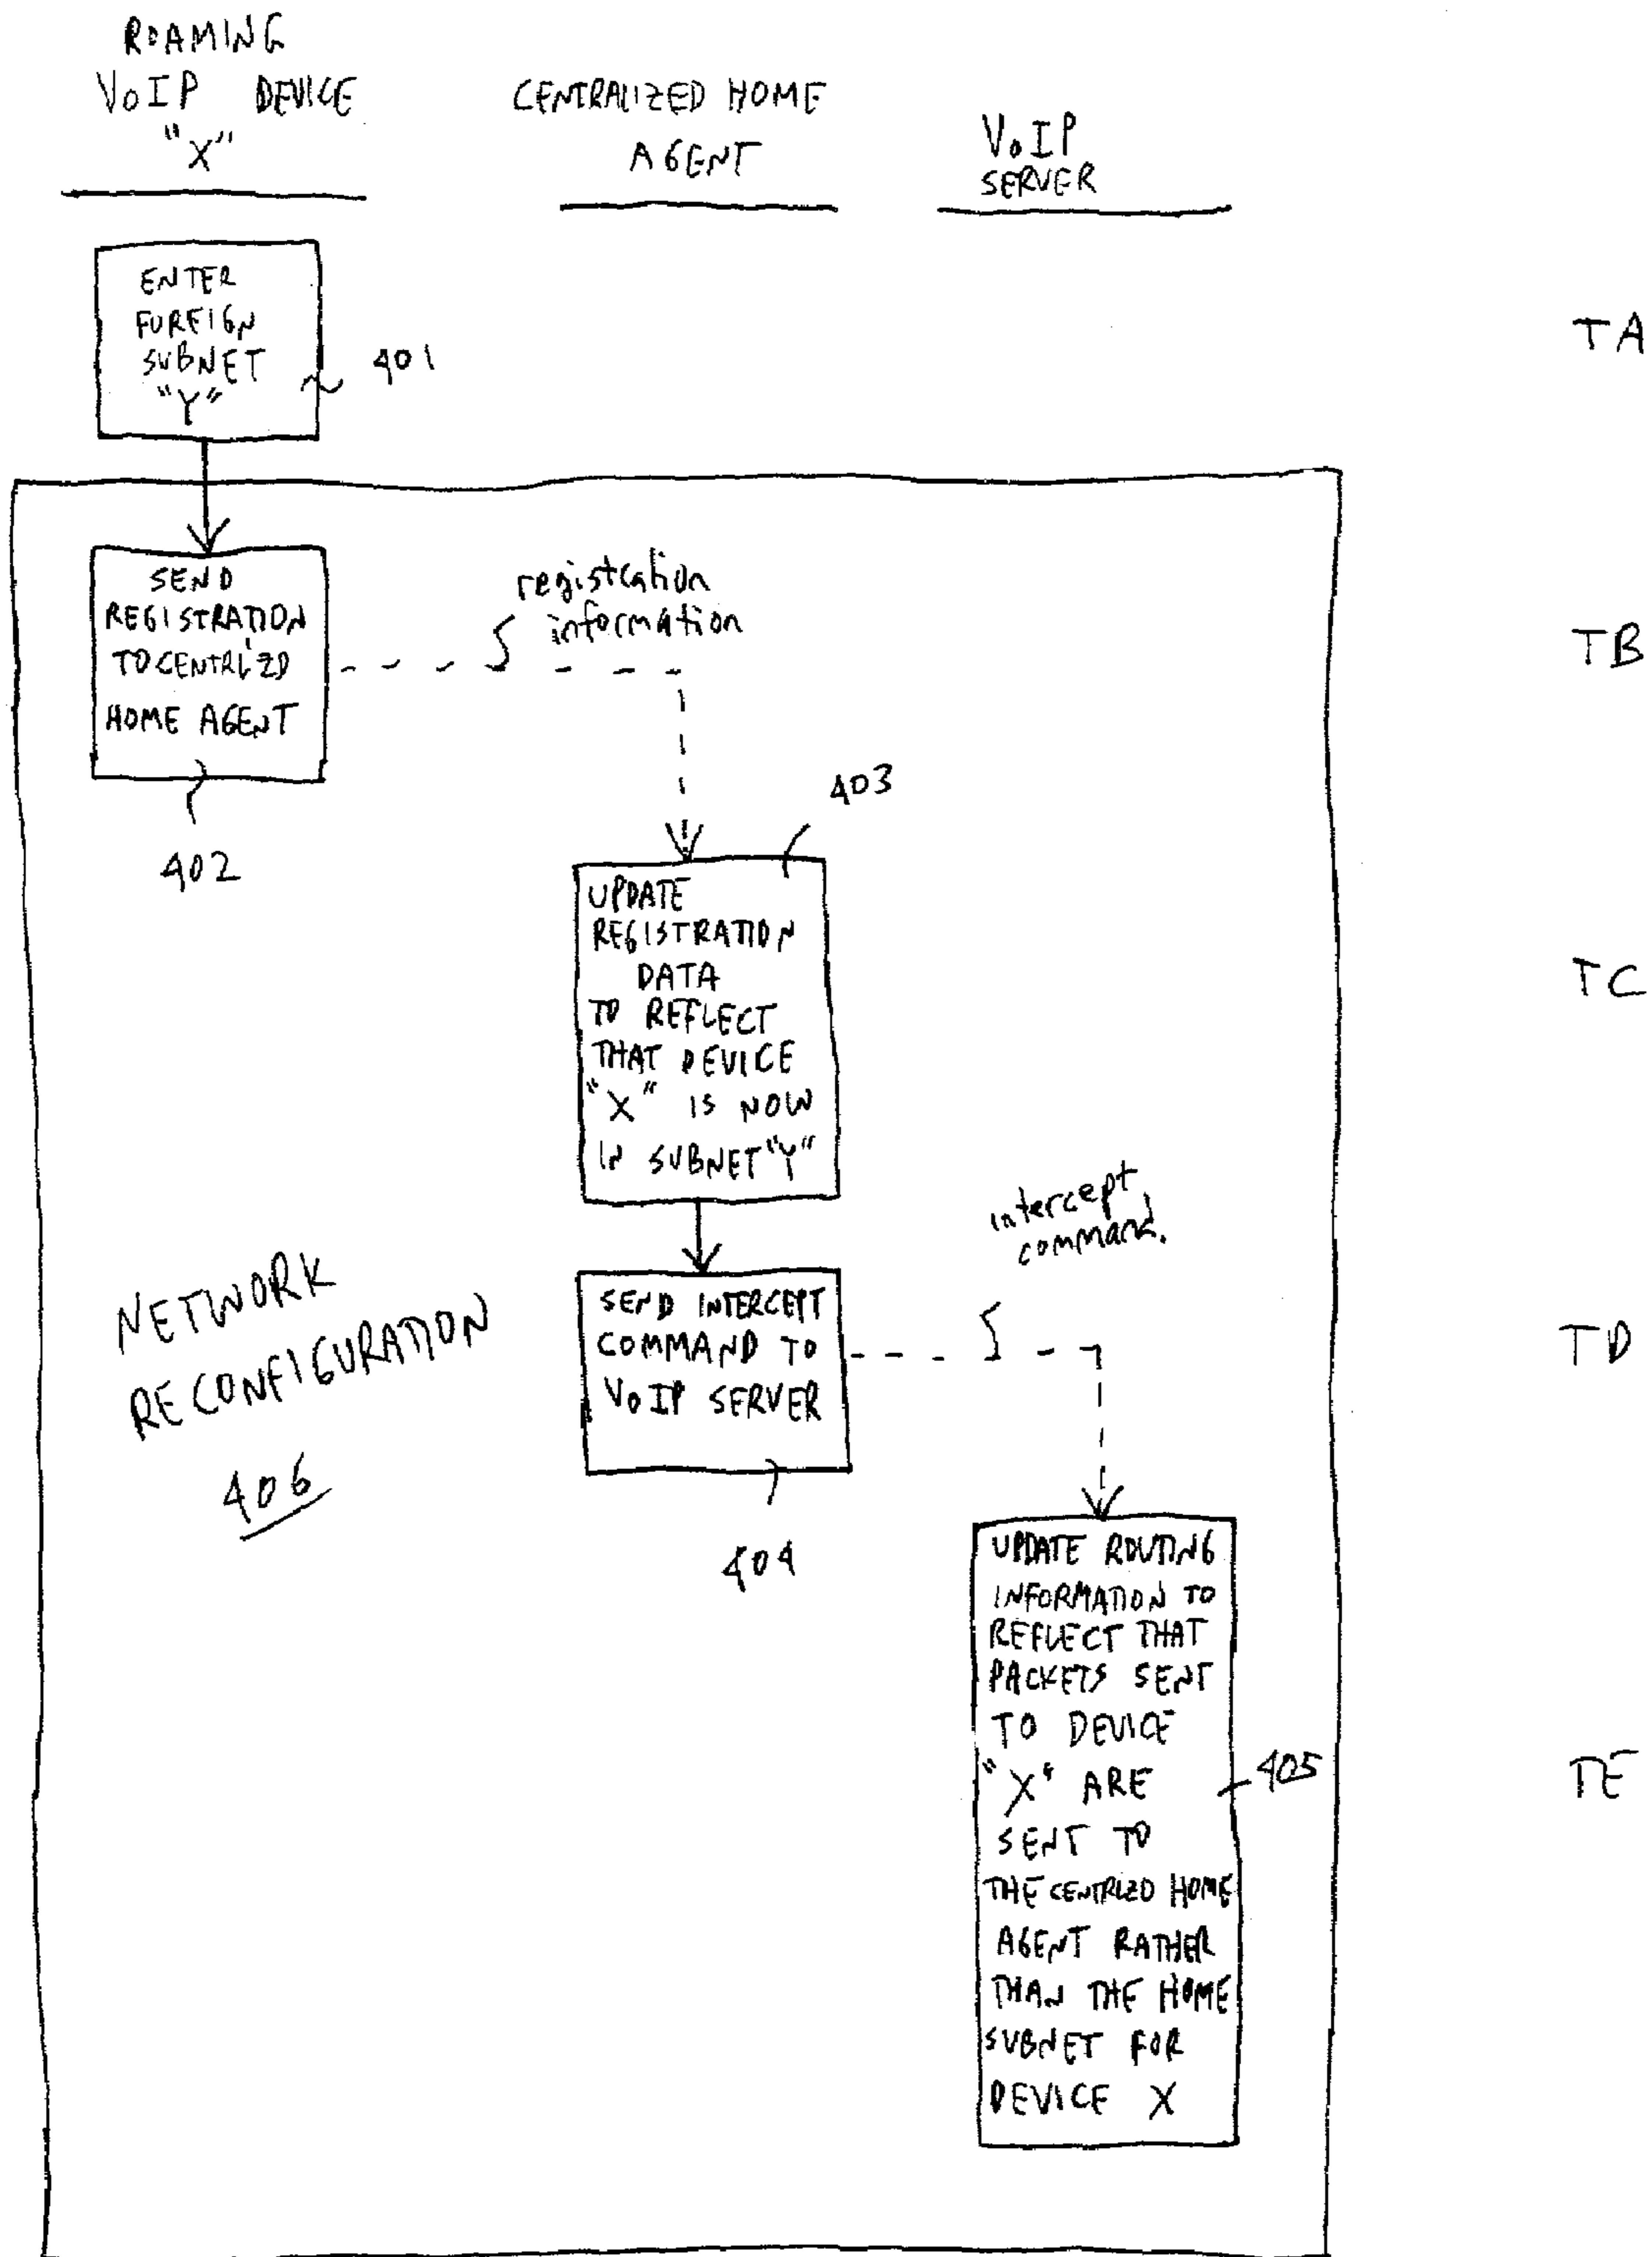 ROAMING
VoIP DEVICE
"X"
CENTRALIZED HOME
AGENT
VoIP
SERVER
ENTER
FOREIGN
SUBNET
"Y"
401
TA
SEND
REGISTRATION
TO CENTRLIZD
HOME AGENT
402
registration
information
TB
403
UPDATE
REGISTRATION
DATA
TO REFLECT
THAT DEVICE
"X" IS NOW
IN SUBNET "Y"
TC
NETWORK
RECONFIGURATION
406
SEND INTERCEPT
COMMAND TO
VoIP SERVER
404
intercept
command.
TD
UPDATE ROUTING
INFORMATION TO
REFLECT THAT
PACKETS SENT
TO DEVICE
"X" ARE
SENT TO
THE CENTRLZD HOME
AGENT RATHER
THAN THE HOME
SUBNET FOR
DEVICE X
405
TE